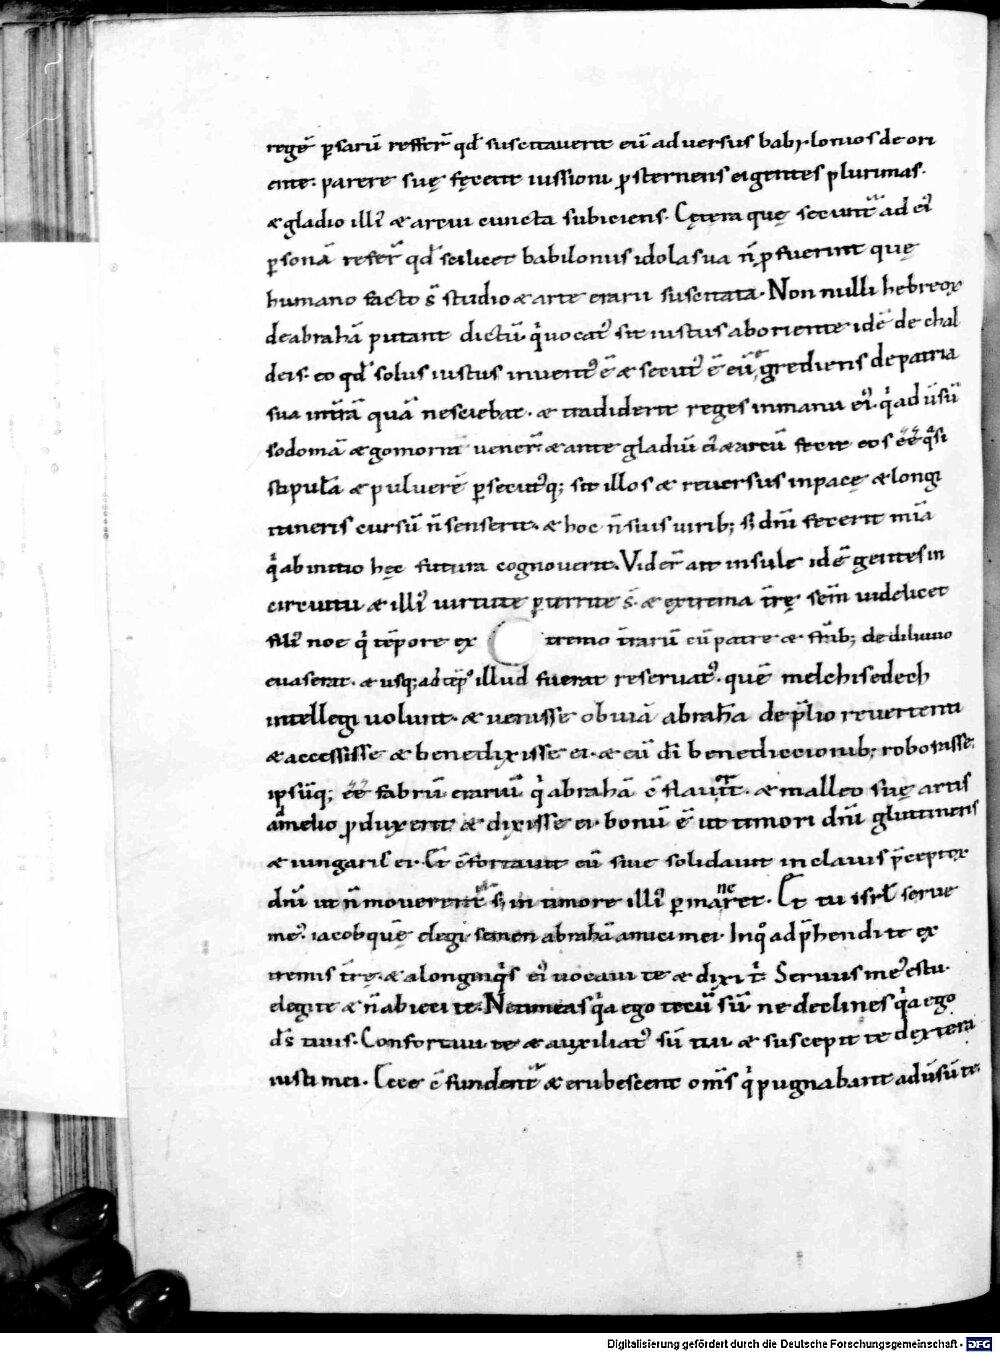 regē ꝑsarū reffert̄ qđ suscitaverit eū adversus babylonios de ori
ente. parere suę fecerit iussioni ꝓsternens ei gentes plurimas.
& gladio illi᾽ & arcui cuncta subiciens. Cętera quę secunt̄ ad ei᾽
ꝑsonā refert̄ qđ scilicet babilonius idola sua n̄ ꝓfuerint quę
humano facto s̄ studio & arte erarii suscitata. Non nulli hebreoꝝ
de abrahā putant dictū. qͥ vocat᾽ sit iustus ab oriente idē de chal
deis. eo qđ solus iustus invent᾽ ē & secut᾽ ē eū grediens de patria
sua in trā quā nesciebat. & tradiderit reges in manu ei᾽. qͥ adūsū
sodomā & gomorra venert̄ & ante gladiū ei᾽ & arcū fecit eos ēē qͣsi
stipulā & pulverē ꝑsecut᾽q; sit illos & reversus in pacę & longi
itineris cursū n̄ senserit. & hoc n̄ suis virib; s; dn̄i fecerit mīa
qͥ ab initio hęc futura cognoverit. Videt̄ ait insule idē gentes in
circuitu & illi᾽ virtute ꝑterrite s̄. & extrema tr̄ę sem̄ videlicet
filii noe qͥ tēpore ex tremo tr̄arū cū patre & fr̄ib; de diluvio
evaserat. & usq; ad tēp᾽ illud fuerat reservat᾽. quē melchisedech
intellegi volunt. & venisse obviā abrahā de p̄lio revertenti
& accessisse & benedixisse ei. & eū di᾽ benediccionib; roborasse.
ipsūq; ēē fabrū erariū qͥ abrahā c̄flavit. & malleo suę artis
amelio ꝓduxerit. & dixisse ei. bonū ē ut timori dn̄i glutinens
& iungaris ei. Et c̄fortavit eū sive solidavit in clavis p̄ceptoꝝ
dn̄i ut n̄ moverent̄ s; in timore illi᾽ ꝑmaneret. Et tu isrl̄ serve
me᾽. iacob quę elegi semen abrahā amici mei. In qͦ adp̄hendi te ex
tremis tr̄ę. & a longinqͥs ei᾽ vocavi te & dixi t̄. Servus me᾽ es tu.
elegi te & n̄ abieci te. Ne timeas qͣa ego tecū sū ne declines qͣa ego
ds̄ tuus. Confortavi te & auxiliat᾽ sū tui & suscepit te dextera
iusti mei. Ecce c̄fundent̄ & erubescent om̄s qͥ pugnabant adūsū te.
Digitalisierung gefördert durch die Deutsche Forschungsgemeinschaft - DFG